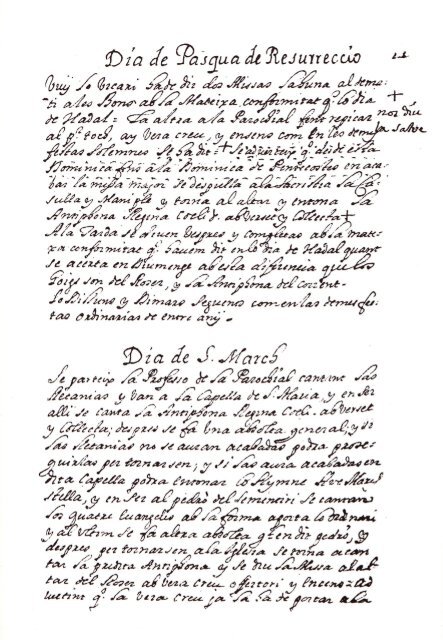 11
Dia de Pasqua de Resurreccio
Vuy lo Vicari ha de dir dos Missas la una al dema-
ti a les Bons ab la Mateixa conformitat q̃ lo dia
de Nadal = la altra a la Parochial fent repicar
al pr. toco, ay vera creu, y ensens com en les demes
+
nos diu
la salve
festas solemnes se ha dit = + q̃ desde esta
Dominica fins á la Dominica de Pentecostes en aca-
bar la missa major se despulla a la Sacristia la Ca-
sulla y Maniple y torna al altar y entona la
Antiphona Regina Coeli &. ab verset y Collecta +
A la Tarda se diuen Vespres y completas ab la mate-
xa conformitat q̃ havem dit en lo dia de Nadal quant
se acerta en Diumenge ab esta diferencia que los
Goigs son del Roser, y la Antiphona del corrent-
Lo Dilluns y Dimars seguens com en las demes fes-
tas ordinarias de entre any -
Dia de S. March
Se parteix la Professo de la Parochial cantant las
Letanias y van a la Capella de S. Maria, y en ser
alli se canta la Antiphona Regina Coeli. ab verset
y Collecta; despres se fa una absolta general, y si
las Letanias no se auran acabadas podra prose-
guirlas per tornarsen; y si las aura acabadas en
dita Capella podra entonar lo Hymne Ave Maris
stella, y en ser al pedro del sementiri se cantan
los quatre Evangelis ab la forma q̃ porta lo ordinari
y al ultim se fa altra absolta q̃ en dit pedro, y
despres per tornarsen, a la Iglesia se torna a can-
tar la predita Antiphona y se diu la Missa al al-
tar del Roser ab vera creu offertori y encens ad
vertint q̃ la vera creu ja la ha de portar a la